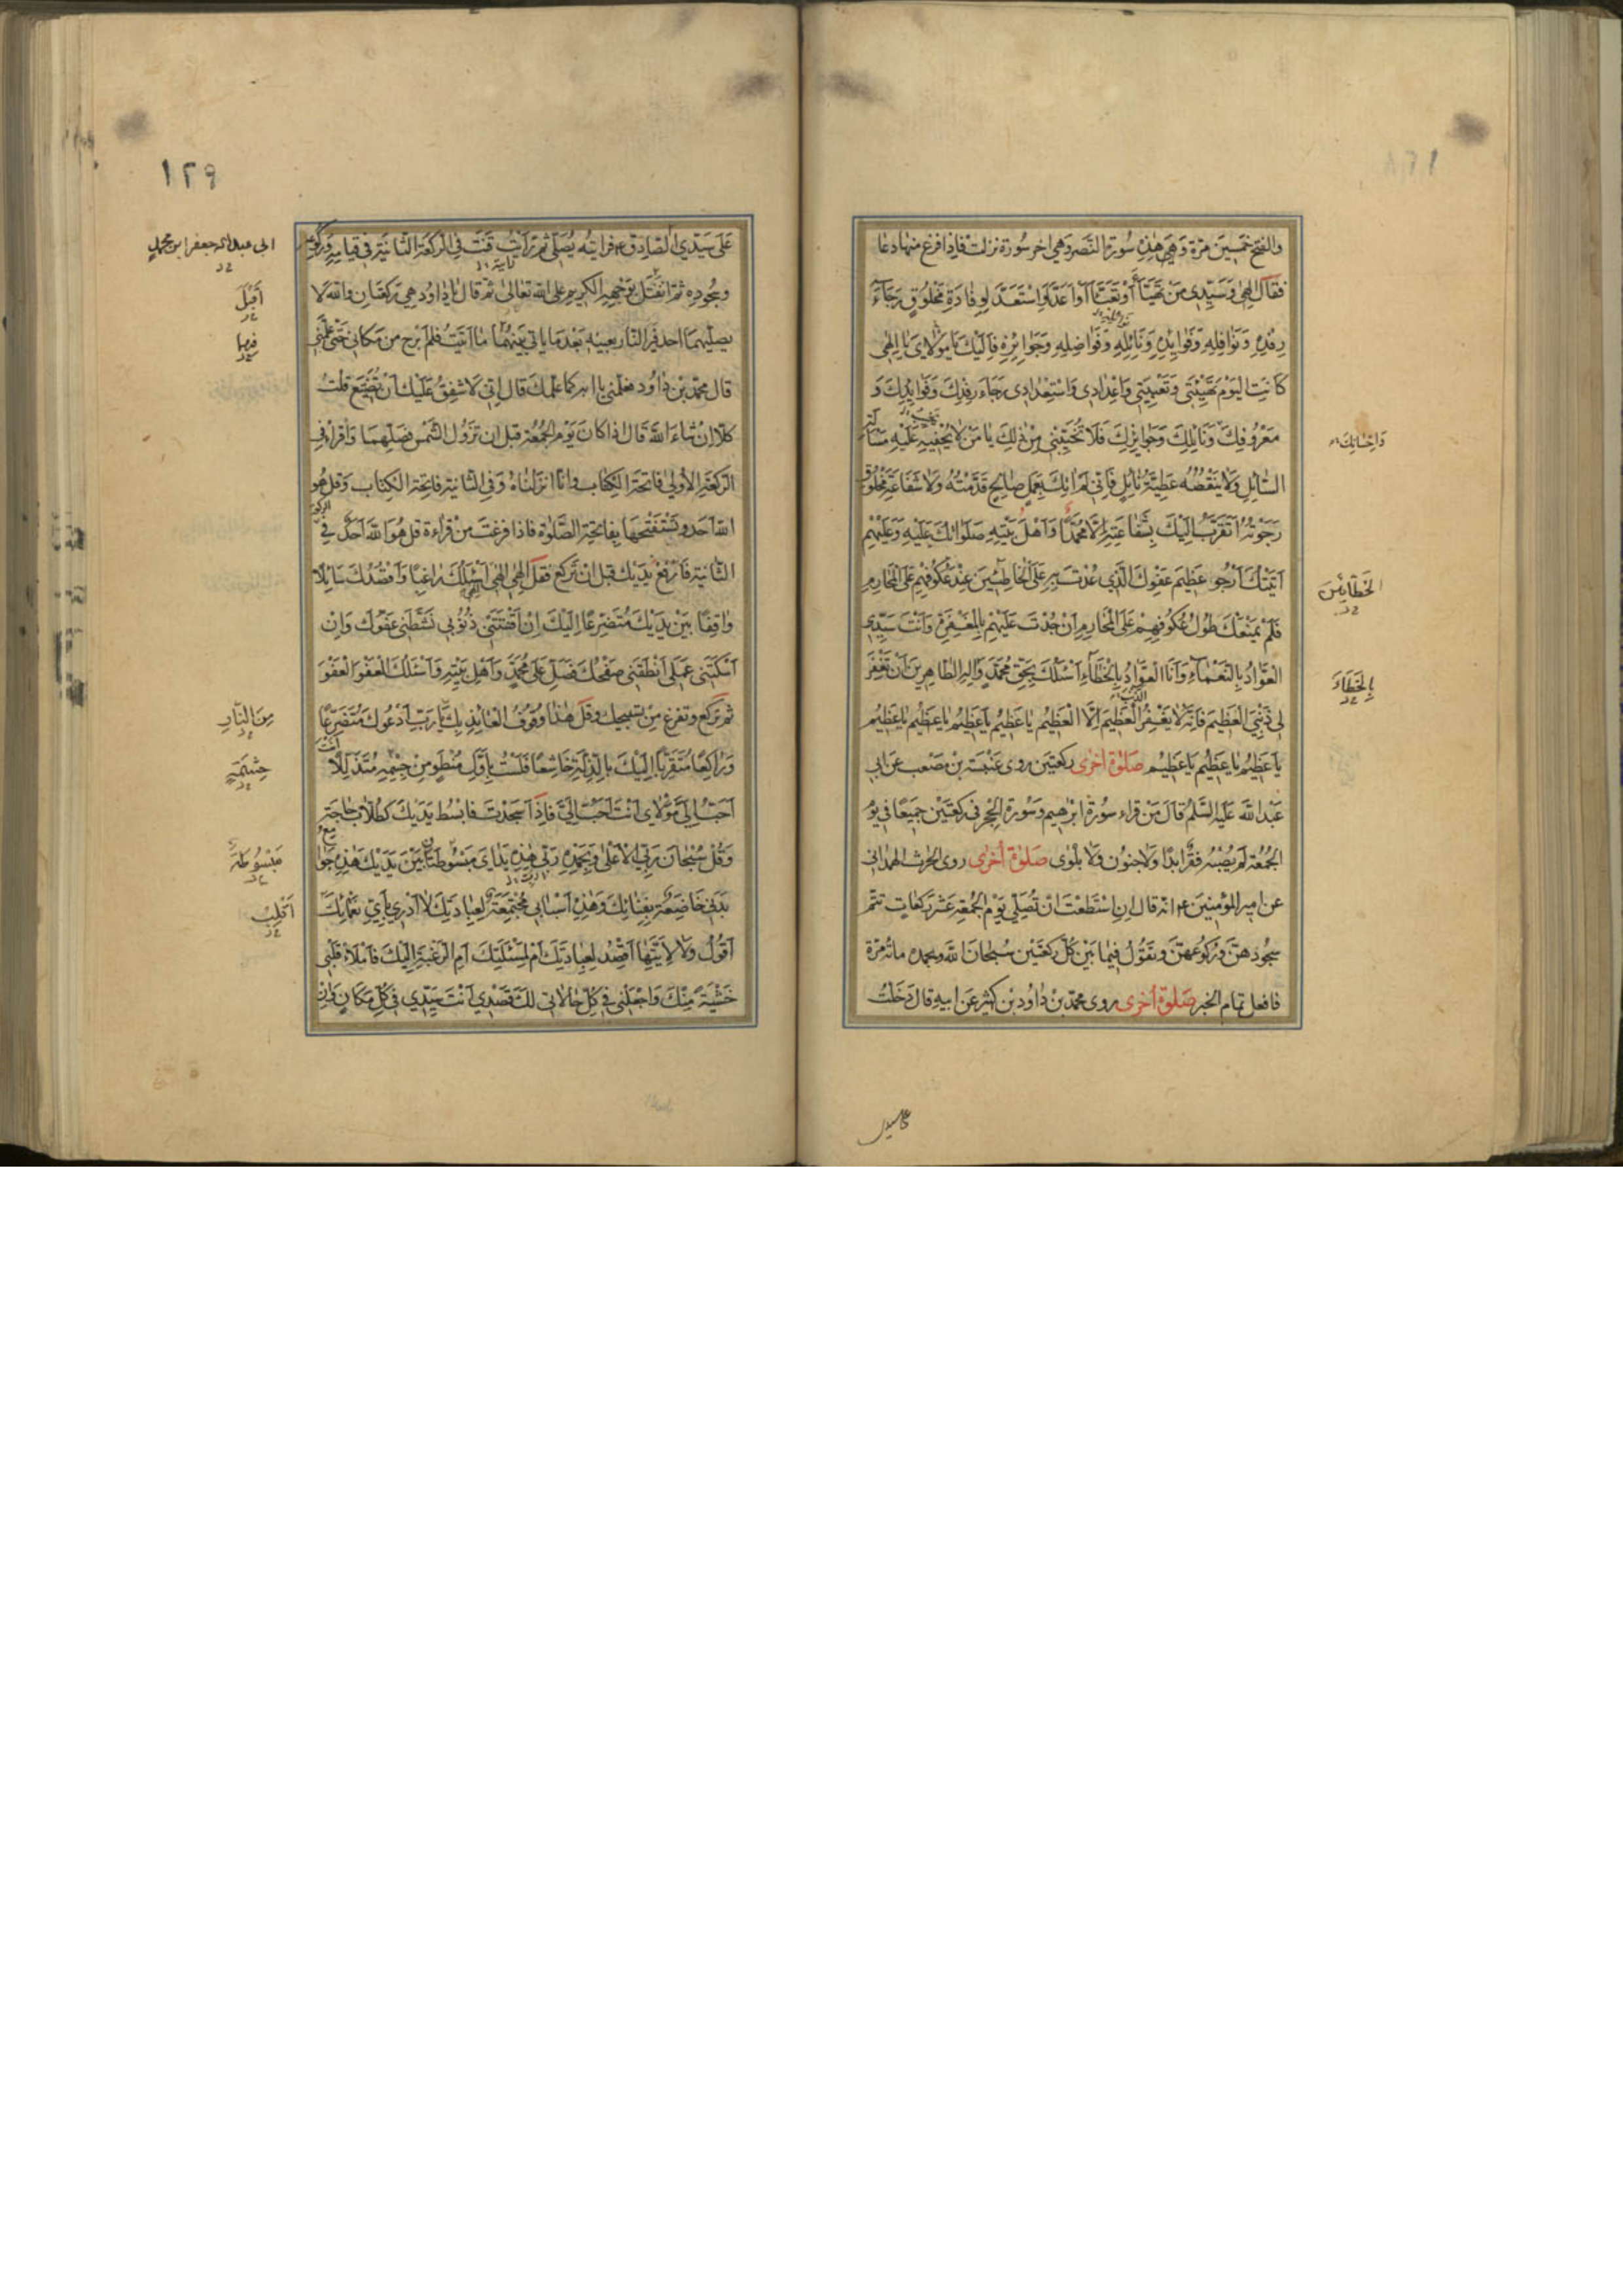 والفتح خمسين مرة وهي هذه سورة النصر وهي اخر سورة نزلت فاذا فرغ منها دعا
فقال الهي وسيدي من تهيأ او تعبأ او اعد او استعد لوفادة مخلوق رجاء
رفده ونوافله وفوائده ونائله وفواضله وجوائزه فاليك يا مولاي يا الهي
كانت اليوم تهيئتي وتعبيتي واعدادي واستعدادي رجاء رفدك وفوائدك و
معروفك ونايلك وجوايزك فلا تخيبني من ذلك يا من لا يخفيه عليه مسألة
واحسانك
السائل ولا ينقصه عطية نائل فاني لم اتك بعمل صالح قدمته ولا شفاعة مخلوق
رجوته اتقرب اليك بشفاعته الا محمدا واهل بيته صلواتك عليه وعليهم
اتيتك ارجو عظيم عفوك الذي عدت به على الخاطئين عند عكوفهم على المحارم
الخطائين
فلم يمنعك طول عكوفهم على المحارم ان جدت عليهم بالمغفرة وانت سيدي
العواد بالنعماء وانا العواد بالخطاء اسئلك بحق محمد واله الطاهرين ان تغفر
بالخطاء
لي ذنبي العظيم فانه لا يغفر العظيم الا العظيم يا عظيم يا عظيم يا عظيم يا عظيم
الذنب
يا عظيم يا عظيم يا عظيم صلوة اخرى ركعتين روى عنبسة بن مصعب عن ابي
عبد الله عليه السلم قال من قراء سورة ابرهيم وسورة الحجر في ركعتين جميعا في يوم
الجمعة لم يصبه فقر ابدا ولا جنون ولا بلوى صلوة اخرى روى الحرث الهمداني
عن امير المؤمنين ع انه قال ان استطعت ان تصلي يوم الجمعة عشر ركعات تتم
سجودهن وركوعهن وتقول فيما بين كل ركعتين سبحان الله وبحمده مائة مرة
فافعل تمام الخبر صلوة اخرى روى محمد بن داود بن كثير عن ابيه قال دخلت
١٢٩
على سيدي الصادق ع فرايته يصلي ثم رايت قنت في الركعة الثانية في قيامه وركوعه
ابي عبد الله جعفر ابن محمد
وسجوده ثم انفتل بوجهه الكريم على الله تعالى ثم قال يا داود هي ركعتان والله لا
اقبل
يصليهما احد فيرى النار بعينه بعد ما ياتي بينهما ما اتيت فلم ابرح من مكاني حتى علمني
فيهما
قال محمد بن داود فعلمني يا ابه كما علمك قال اني لاشفق عليك ان تضيع قلت
كلا ان شاء الله قال اذا كان يوم الجمعة قبل ان تزول الشمس فصلهما واقراء في
الركعة الاولى فاتحة الكتاب وانا انزلناه وفي الثانية فاتحة الكتاب وقل هو
الله احد وتستفتحها بفاتحة الصلوة فاذا فرغت من قراءة قل هو الله احد في
الثانية فارفع يديك قبل ان تركع فقل الهي الهي اسئلك راغبا واقصدك سايلا
واقفا بين يديك متضرعا اليك ان اقنتتني ذنوبي نشطني عفوك وان
اسكتني عملي انطقني صفحك فصل على محمد واهل بيته فاسئلك العفو العفو
ثم تركع وتفرغ من تسبيحك وقل هذا وقوف العائذ بك يا رب ادعوك متضرعا
من النار
وراكعا متقربا اليك بالذلة خاشعا فلست باول منطو من جشمه متذللا
انت
احب الي مولاي انت احب الي فاذا سجدت فابسط يديك كطلاب حاجة
وقل سبحان ربي الاعلى وبحمده رب هذه يداي مبسوطتان بين يديك هذه جوامع
مبسوطة
بدني خاضعة بفنائك وهذه اسبابي مجتمعة لعبادتك لا ادري باي نعمائك
اقلب
اقول ولا لايتها اقصد لعبادتك ام لمسئلتك ام الرغبة اليك فاملاء قلبي
خشية منك واجعلني في كل حالاتي لك قصدي انت سيدي في كل مكان وان